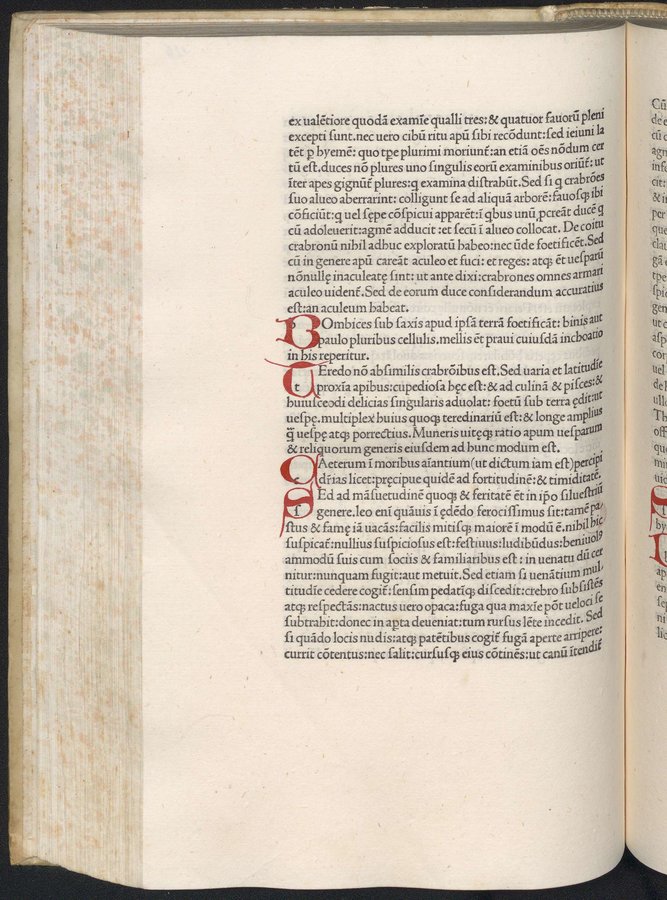 ex ualẽtiore quodã examĩe qualli tres:& quatuor fauorũ pleni
excepti sunt.nec uero cibũ ritu apũ sibi recõdunt:sed ieiuni la
tẽt p hyemẽ: quo tpe plurimi moriunt̃:an etiã oẽs nõdum cer
tũ est.duces nõ plures uno singulis eorũ examinibus oriũt̃: ut
ĩter apes gignũt̃ plures:q examina distrahũt.Sed si q crabrões
suo alueo aberrarint: colligunt se ad aliquã arborẽ:fauosqꝫ ibi
cõficiũt:q uel sępe cõspicui apparẽt:ĩ qbus unũ pcreãt ducẽ q
cũ adoleuerit:agmẽ adducit :et secũ ĩ alueo collocat. De coitu
crabronũ nihil adhuc exploratũ habeo:nec ũde foetificẽt.Sed
cũ in genere apũ careãt aculeo et fuci: et reges: atqꝫ ẽt uesparũ
nõnullę inaculeatę sint: ut ante dixi:crabrones omnes armari
aculeo uident̃.Sed de eorum duce considerandum accuratius
est:an aculeum habeat.
BOmbices sub saxis apud ipsã terrã foetificãt: binis aut
paulo pluribus cellulis.mellis ẽt praui cuiusdã inchoatio
in his reperitur.
TEredo nõ absimilis crabrõibus est.Sed uaria et latitudĩe
t proxĩa apibus:cupediosa hęc est:& ad culinã & pisces:&
huiusceodi delicias singularis aduolat: foetũ sub terra ędit:ut
uespę.multiplex huius quoqꝫ teredinariũ est:& longe amplius
q̃ uespę atqꝫ porrectius.Muneris uitęqꝫ ratio apum uesparum
& reliquorum generis eiusdem ad hunc modum est.
CAeterum ĩ moribus aĩantium(ut dictum iam est)percipi
dr̃ias licet:pręcipue quidẽ ad fortitudinẽ:& timiditatẽ.
SEd ad mãsuetudinẽ quoqꝫ & feritatẽ ẽt in ip̃o siluestriũ
s genere.leo eni quãuis ĩ ędẽdo ferocissimus sit:tamẽ pa
stus & famę iã uacãs:facilis mitisqꝫ maiorẽ ĩ modũ ẽ.nihil hic
suspicat̃:nullius suspiciosus est:festiuus:ludibũdus:beniuolꝰ
ammodũ suis cum sociis & familiaribus est : in uenatu dũ cer
nitur:nunquam fugit:aut metuit.Sed etiam si uenãtium mul
titudĩe cedere cogit̃:sensim pedatĩqꝫ discedit:crebro subsistẽs
atqꝫ respectãs:nactus uero opaca:fuga qua maxĩe põt ueloci se
subtrahit:donec in apta deueniat:tum rursus lẽte incedit. Sed
si quãdo locis nudis:atqꝫ patẽtibus cogit̃ fugã aperte arripere:
currit cõtentus:nec salit:cursusqꝫ eius cõtinẽs:ut canũ ĩtendit̃